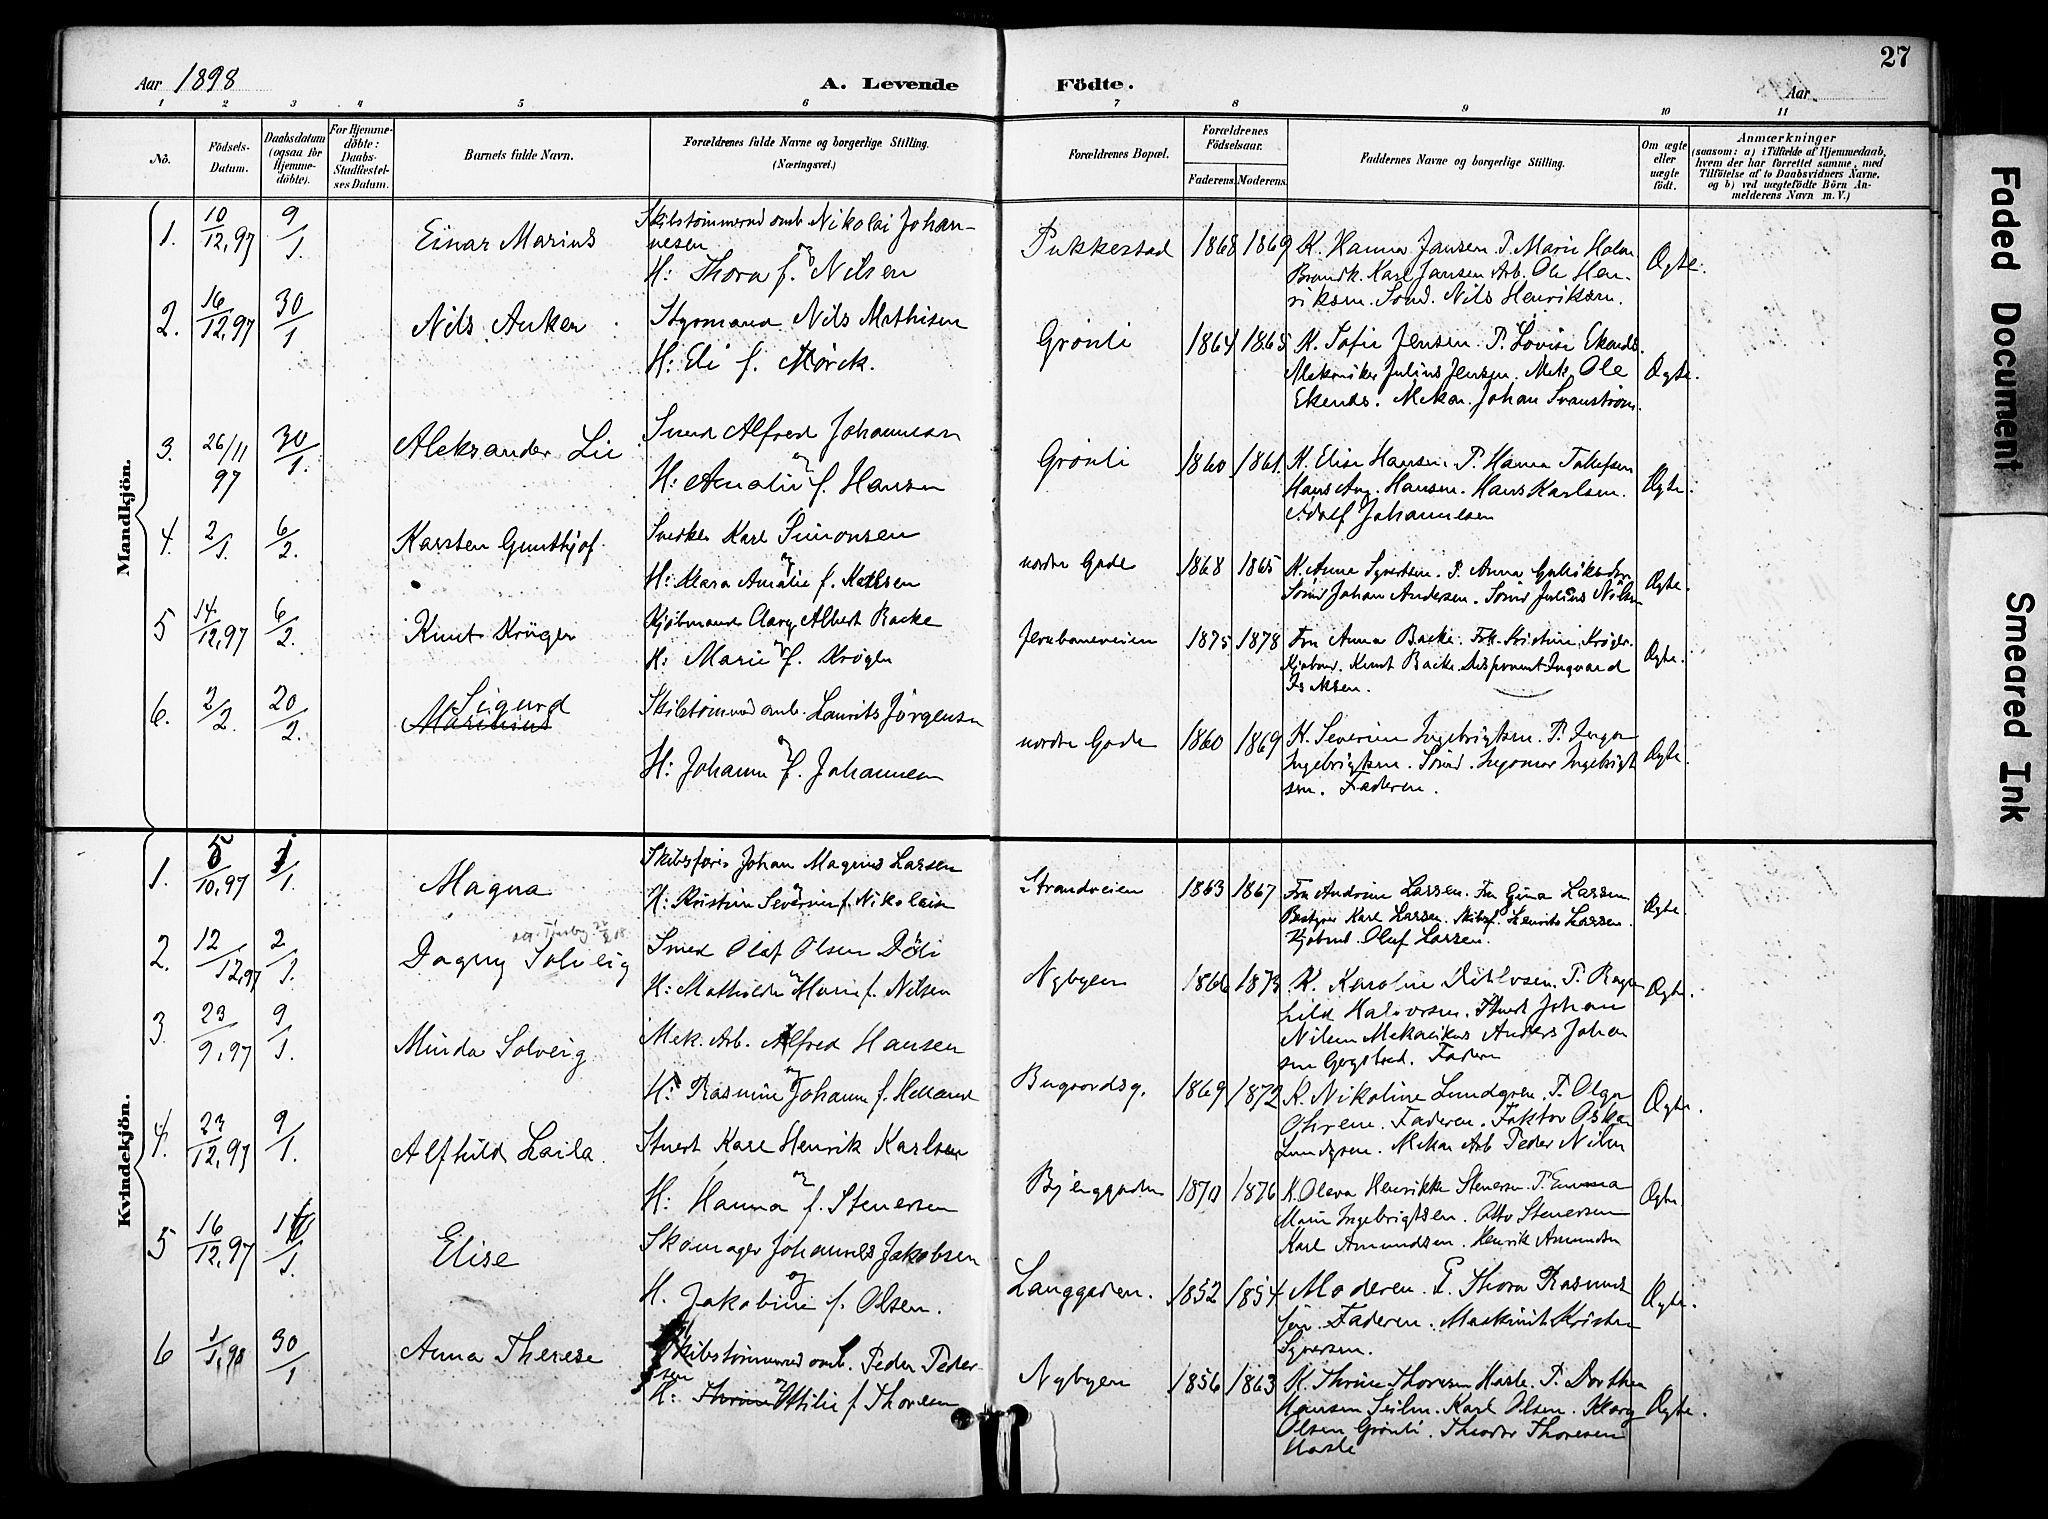 Aar 1898
A. Levende Födte.
27
Aar
1 2 3 4 5 6 7 8 9 10 11
No.
Födsels-Datum.
Daabsdatum (ogsaa för Hjemme-döbte).
For Hjemme-döbte: Daabs-Stadfæstel-ses Datum.
Barnets fulde Navn.
Forældrenes fulde Navne og borgerlige Stilling. (Næringsvei.)
Forældrenes Bopæl.
Forældrenes Födselsaar.
Faderens. Moderens.
Faddernes Navne og borgerlige Stilling.
Om ægte eller uægte födt.
Anmærkninger
(saasom: a) i Tilfælde af Hjemmedaab, hvem der har forrettet samme, med Tilföielse af to Daabsvidners Navne, og b) ved uægtefödte Börn An-melderens Navn m. V.)
Mandkjön.
1. 10/12,97 9/1. Einar Marius
Skibstømmermd arb Nikolai Johan-
nesen og
H: Thora f. Nilsen
Pukkestad 1868 1869
K. Hanna Jansen P. Marie Holm
Brandk. Karl Jansen Arb. Ole Hen-
riksen. Sømd. Nils Henriksen.
Ægte.
2. 16/12,97 30/1 Nils Anker
Styrmand Nils Mathisen
H: Eli f. Mørck.
Grønli 1864 1865
K. Sofie Jensen. P. Lovise Ekends.
Mekaniker Julius Jensen. Mek. Ole
Ekends. Mekan. Johan Svanstrøm.
Ægte.
3. 26/11 97 30/1. Aleksander Lie
Smed Alfred Johannesen
og
H: Amalie f. Hansen
Grønli 1860 1861.
K. Elise Hansen. P. Hanna Tollefsen
Hans Aug. Hansen. Hans Karlsen.
Adolf Johannesen
Ægte.
4. 2/1. 6/2. Karsten Gunthjof.
Snedker Karl Simonsen
og
H: Klara Amalie f. Karlsen
nordre Gade 1868 1865
K. Anna Syvertsen. P. Anna
Sømd Johan Andersen. Sømd Julius Nilsen
Ægte.
5 14/12,97 6/2. Knut Krøger
Kjøbmand Clary Albert Backe
og
H: Marie f. Krøger
Jernbaneveien 1875 1878
Fru Anna Backe. Frk. Kristine Krøger.
Kjøbmd. Knut Backe. Disponent Ingvard
Isaksen.
Ægte.
6. 2/2. 20/2. Sigurd
Marthinius
Skibstømmermd arb. Laurits Jørgensen
og
H: Johanne f. Johannesen
nordre Gade 1860 1869
K. Severine Ingebrigtsen. P. Inga
Ingebrigtsen. Sømd. Ingomar Ingebrigt
sen. Faderen.
Ægte.
Kvindekjön.
1. 5/10,97 1/1. Magna
Skibsfører Johan Magnus Larsen
og
H: Kristine Severine f. Nikolaisen
Strandveien 1863 1867
Fru Andrine Larsen. Fru Gina Larsen
Bestyrer Karl Larsen. Skibsf. Laurits Larsen.
Kjøbmd Oluf Larsen.
Ægte.
2. 12/12,97 2/1. Dagny Solveig
Smed Olaf Olsen Døli
og
H: Mathilde Marie f. Nilsen
Nybyen 1866 1873
K. Karoline Ditlevsen. P. Ragn
hild Halvorsen. Stuert Johan
Nilsen Mekanikus Anders Johan
sen Gogstad. Faderen
Ægte.
3. 23/9,97 9/1. Minda Solveig
Mek. Arb. Alfred Hansen
og
H: Rasmine Johanne f. Helland
Bugaardsg. 1869 1872
K. Nikoline Lundgren. P. Olga
Øhren. Faderen. Faktor Oskar
Lundgren. Mekan Arb Peder Nilsen
Ægte.
4. 23/12,97 9/1. Alfhild Laila.
Stuert Karl Henrik Karlsen
og
H: Hanna f. Stenersen
Bjerggaden 1870 1876
K. Oleva Henrikke Stenersen. P. Emma
Marie Ingebrigtsen. Otto Stenersen
Karl Amundsen. Henrik Amundsen
Ægte.
5 16/12,97 16/1. Elise
Skomager Johannes Jakobsen
og
H. Jakobine f. Olsen.
Langgaden. 1852 1854
Moderen. P. Thora Rasmus
sen. Faderen. Maskinist Kristen
Syversen.
Ægte.
6 1/1,98 30/1 Anna Therese
Skibstømmermd arb. Peder Peder-
sen og
H: Thrine Ottilie f. Thoresen
Nybyen 1856 1863
K. Thrine Thoresen Hasle. P. Dorthea
Hansen Seilm. Karl Olsen. Klara
Olsen Grønli. Theodor Thoresen
Hasle
Ægte.
Faded Document
Smeared Ink